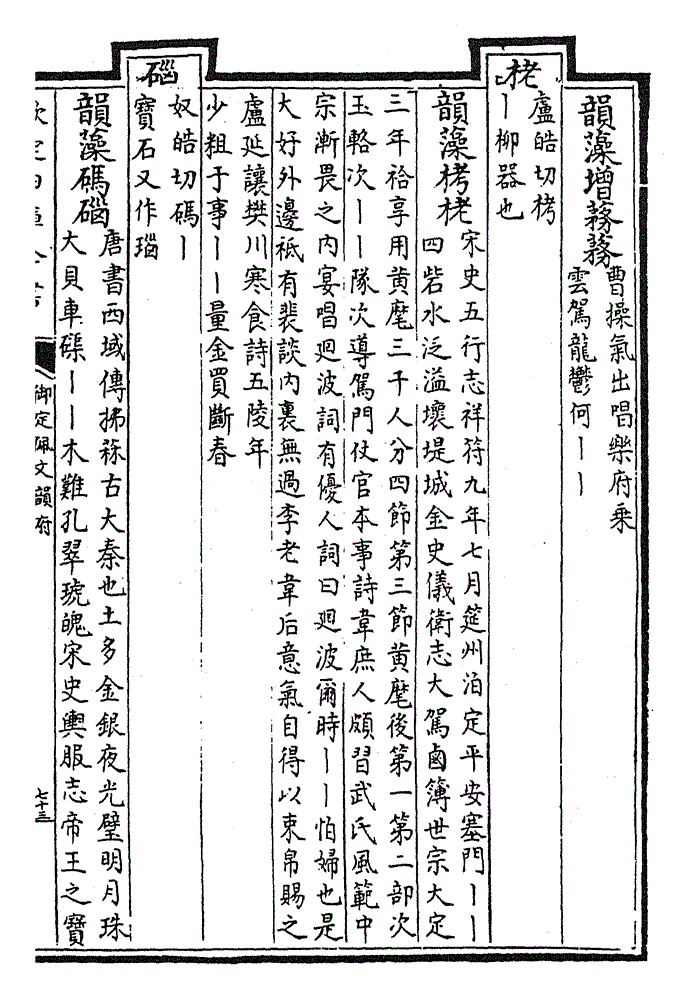 韻藻增蓩蓩
曹操氣出唱樂府乘
雲駕龍鬱何丨丨
栳
盧皓切栲
丨柳器也
韻藻栲栳
宋史五行志祥符九年七月筵州洎定平安塞門丨丨
四砦水泛溢壞堤城金史儀衛志大駕鹵簿世宗大定
三年祫享用黄麾三千人分四節第三節黄麾後第一第二部次
玉輅次丨丨隊次導駕門仗官本事詩韋庶人頗習武氏風範中
宗漸畏之内宴唱廻波詞有優人詞曰廻波爾時丨丨怕婦也是
大好外邊祗有裴談内裏無過李老韋后意氣自得以束帛賜之
盧延讓樊川寒食詩五陵年
少粗于事丨丨量金買斷春
碯
奴皓切碼丨
寶石又作瑙
韻藻碼碯
唐書西域傳拂菻古大秦也土多金銀夜光璧明月珠
大貝車磲丨丨木難孔翠琥魄宋史輿服志帝王之寶
欽定四庫全書
御定佩文韻府
七十三